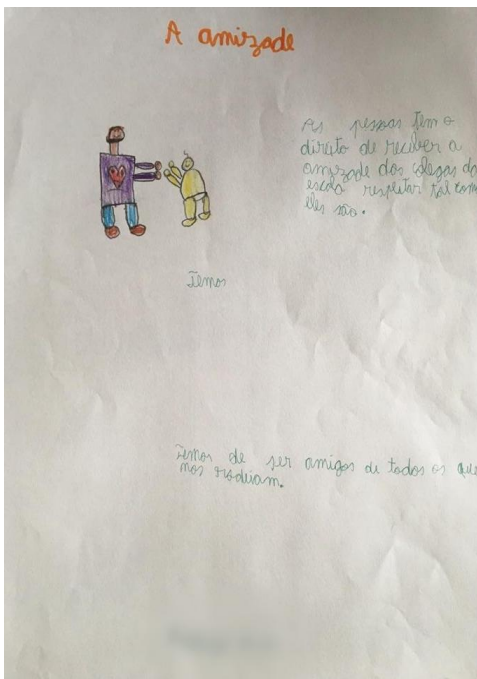 A amizade
As pessoas tem o
direito de receber a
amizade dos colegas da
escola respeitar tal como
eles são.
Temos
Temos de ser amigos de todos os que
nos rodeiam.